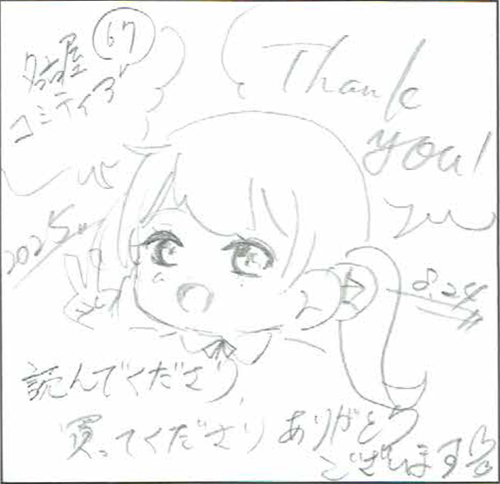 名古屋 67
コミティア
Thank
you!
2025
8.24
読んでくださり、
買ってくださりありがとう
ございます